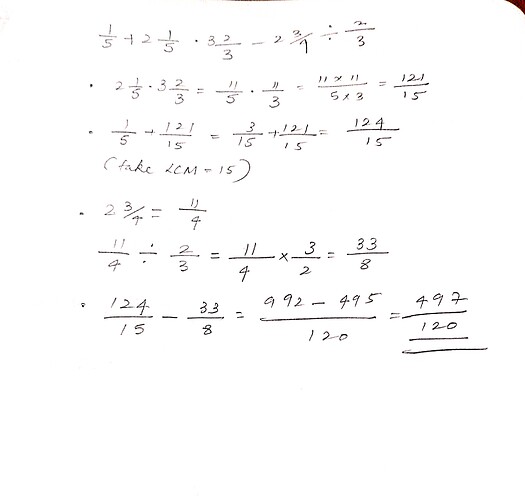 1/5 + 2 1/5 · 3 2/3 - 2 3/4 ÷ 2/3
· 2 1/5 · 3 2/3 = 11/5 · 11/3 = 11 × 11/5 × 3 = 121/15
· 1/5 + 121/15 = 3/15 + 121/15 = 124/15
(take LCM = 15)
· 2 3/4 = 11/4
11/4 ÷ 2/3 = 11/4 × 3/2 = 33/8
· 124/15 - 33/8 = 992 - 495/120 = 497/120